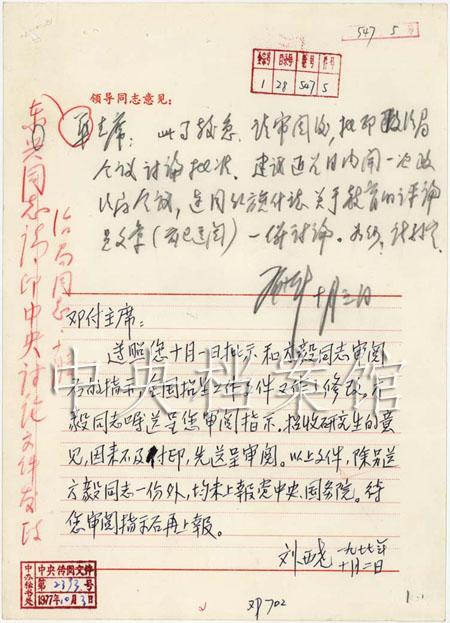 547 5号
全宗号 目录号 卷号 件号
1 28 547 5
领导同志意见:
华主席:此事较急,请审阅后,批印政治局
会议讨论批准。建议近几日内开一次政
治局会议,连同红旗杂志关于教育的评论
员文章(前已送阅)一并讨论。
十月三日
东兴同志:请印中央讨论文件发政
治局同志。
邓付主席:
遵照您十月一日批示和方毅同志审阅
后的指示,全国招生工作文件又作了修改,方
毅同志嘱送呈您审阅指示。招收研究生的意
见,因来不及付印,先送呈审阅。以上文件,除另送
方毅同志一份外,均未上报党中央国务院。待
您审阅指示后再上报。
刘西尧 一九七七年
十月二日
中央档案馆
中办秘书处
中央传阅文件
第2393号
1977年10月3日
邓702